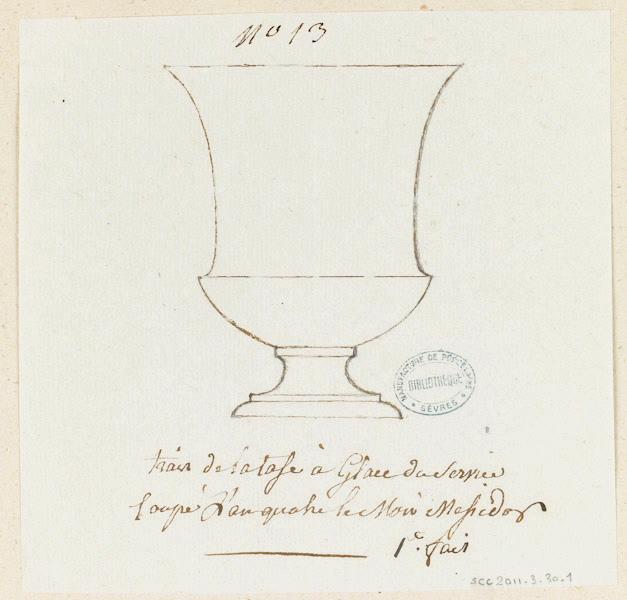 No 13
MANUFACTURE DE PORCELAINE
BIBLIOTHEQUE
SEVRES
trait de la tasse à Glace du Service
Coupé L'an quatre le Mois Messidor
1e. fait
SCC2011.3.30.1